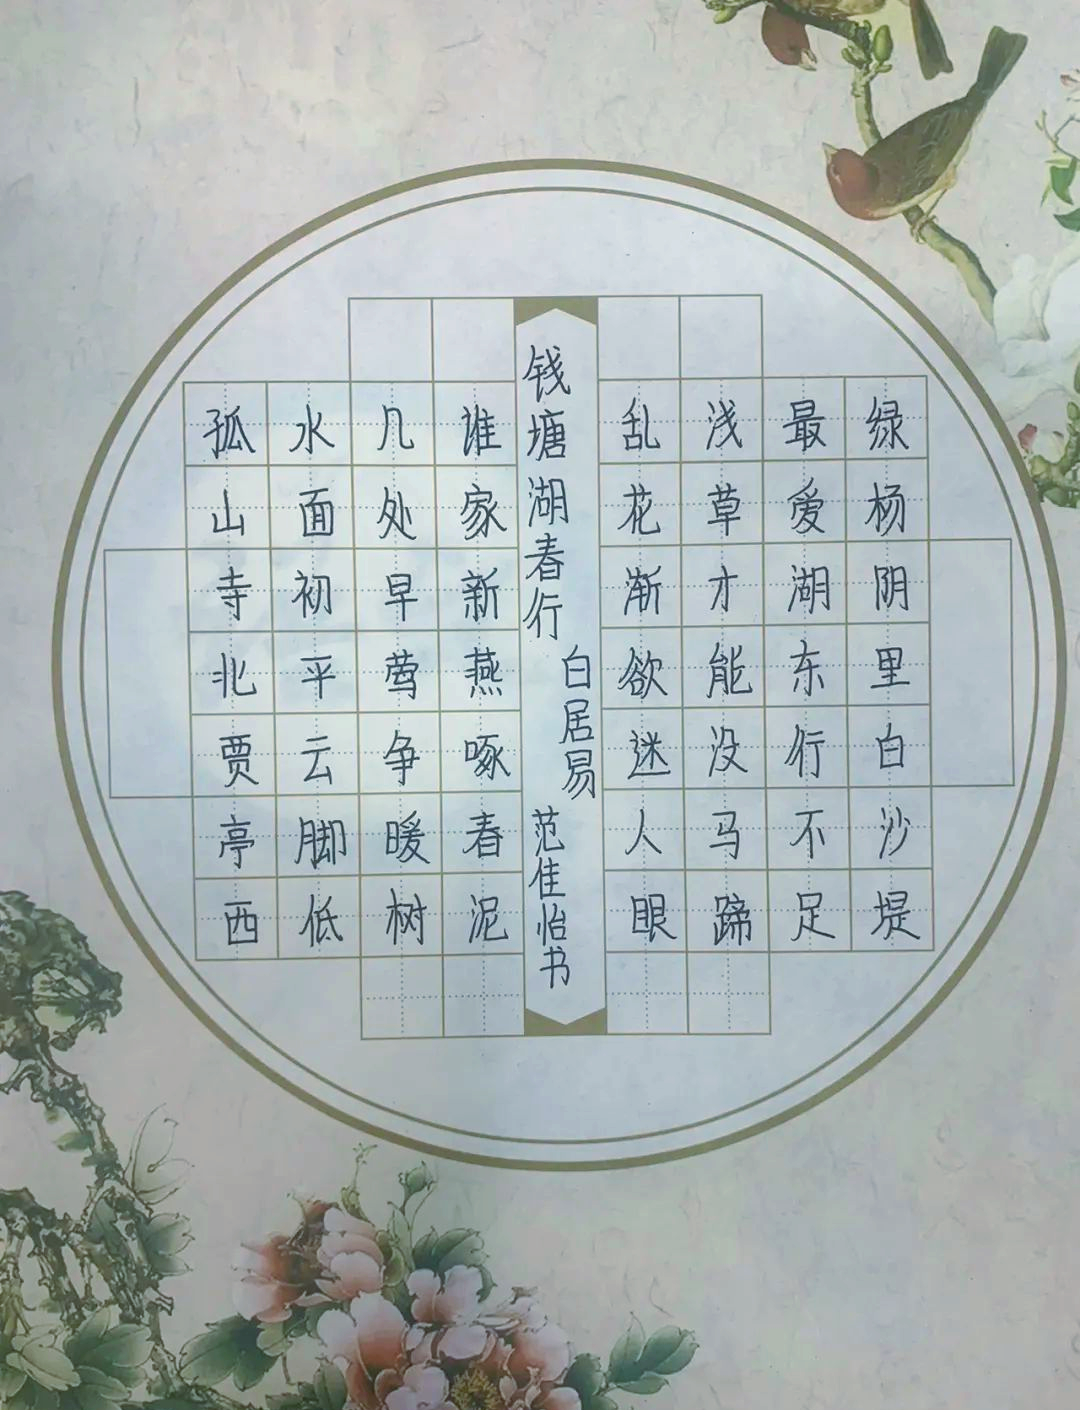 孤山寺北贾亭西
水面初平云脚低
几处早莺争暖树
谁家新燕啄春泥
钱塘湖春行
白居易
范佳怡书
乱花渐欲迷人眼
浅草才能没马蹄
最爱湖东行不足
绿杨阴里白沙堤